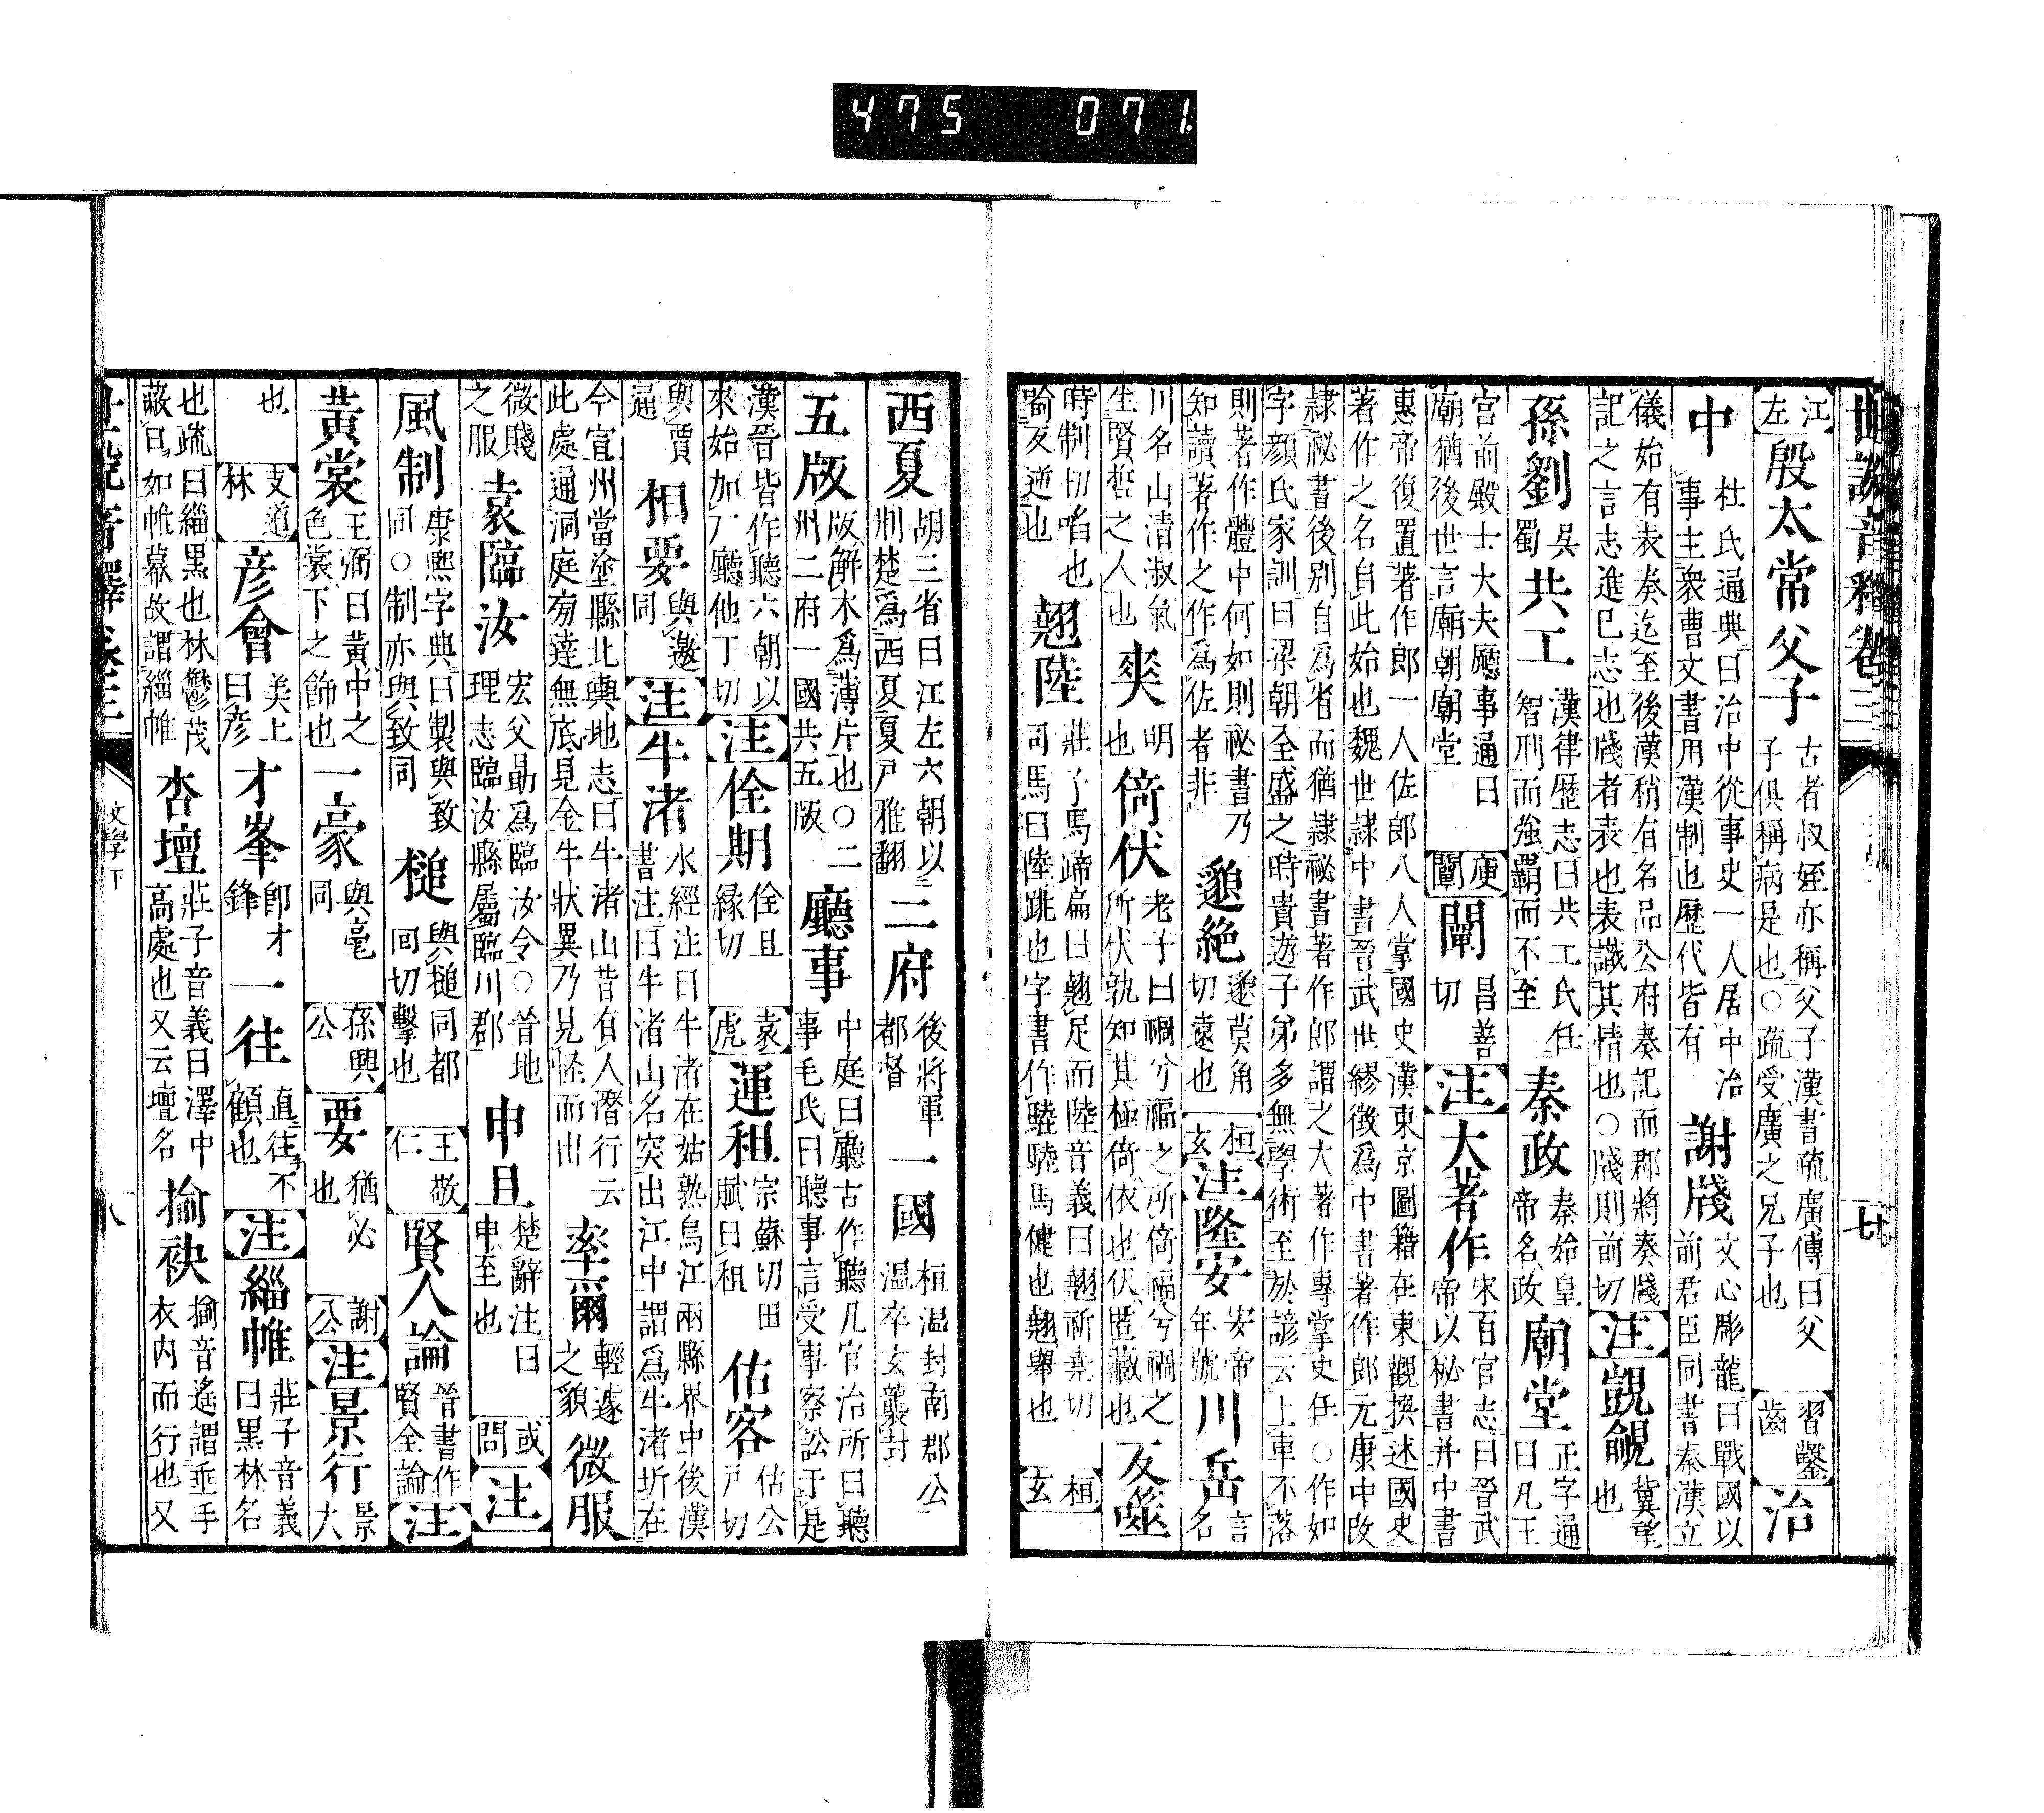 475 071
世說音釋卷三
七
江左 殷太常父子 古者叔姪亦稱父子漢書疏廣傳曰父子俱稱病是也○疏受廣之兄子也 習鑿齒 治
中 杜氏通典曰治中從事史一人居中治事主衆曹文書用漢制也歷代皆有 謝牋 文心彫龍曰戰國以前君臣同書秦漢立
儀始有表奏迄至後漢稍有名品公府奏記而郡將奏牋記之言志進已志也牋者表也表識其情也○牋則前切 注 覬覦 冀望也
孫劉 吳蜀 共工 漢律歷志曰共工氏任智刑而強覇而不至 秦政 秦始皇帝名政 廟堂 正字通曰凡王
宮前殿士大夫廳事通曰廟猶後世言廟朝廟堂 庾闡 闡 昌善切 注 大著作 宋百官志曰晉武帝以秘書并中書
惠帝復置著作郎一人佐郎八人掌國史漢東京圖籍在東觀撰述國史著作之名自此始也魏世隷中書晉武世繆徵爲中書著作郎元康中改
隷祕書後別自爲省而猶隷祕書著作郎謂之大著作專掌史任○作如字顏氏家訓曰梁朝全盛之時貴遊子弟多無學術至於諺云上車不落
則著作體中何如則祕書乃知讀著作之作爲佐者非 邈絶 邈莫角切遠也 桓玄 注 隆安 安帝年號 川岳 言名
川名山清淑氣生賢哲之人也 爽 明也 倚伏 老子曰禍兮福之所倚福兮禍之所伏孰知其極倚依也伏匿藏也 反噬
時制切啗也喻反逆也 翹陸 莊子馬蹄扁曰翹足而陸音義曰翹祈堯切司馬曰陸跳也字書作騄騄馬健也翹舉也 桓玄
西夏 胡三省曰江左六朝以荆楚爲西夏夏戸雅翻 二府 後將軍都督 一國 桓温封南郡公温卒玄襲封
五版 版解木爲薄片也○二州二府一國共五版 廳事 中庭曰廳古作聽凡官治所曰聽事毛氏曰聽事言受事察訟于是
漢晉皆作聽六朝以來始加厂廳他丁切 注 佺期 佺且縁切 袁虎 運租 宗蘇切田賦曰租 估客 估公戸切
與賈通 相要 與邀同 注 牛渚 水經注曰牛渚在姑熟烏江兩縣界中後漢書注曰牛渚山名突出江中謂爲牛渚圻在
今宜州當塗縣北輿地志曰牛渚山昔有人潛行云此處通洞庭旁達無底見金牛狀異乃見怪而出 率爾 輕遽之貌 微服
微賤之服 袁臨汝 宏父勗爲臨汝令○晉地理志臨汝縣屬臨川郡 申旦 楚辭注曰申至也 或問 注
風制 康熙字典曰製與致同○制亦與致同 槌 與搥同都囘切擊也 王敬仁 賢人論 晉書作賢全論 注
黄裳 王弼曰黃中之色裳下之飾也 一豪 與毫同 孫興公 要 猶必也 謝公 注 景行 景大
也 支道林 彦會 美上曰彦 才峯 卽才鋒 一往 直往不顧也 注 緇帷 莊子音義曰黒林名
也疏曰緇黒也林鬱茂蔽曰如帷幕故謂緇帷 杏壇 莊子音義曰澤中高處也又云壇名 揄袂 揄音遙謂垂手衣内而行也又
世說音釋卷三
文學下
八